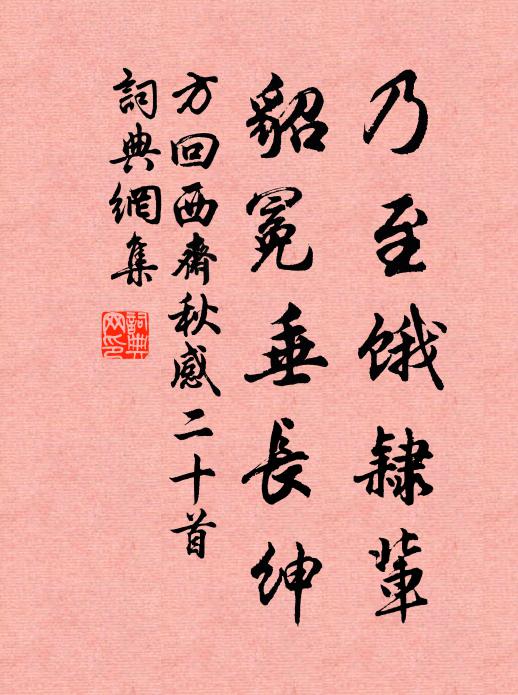 乃至餓隸輩
貂冕垂長紳
方回西齋秋感二十首
詞典網集
詞典網印